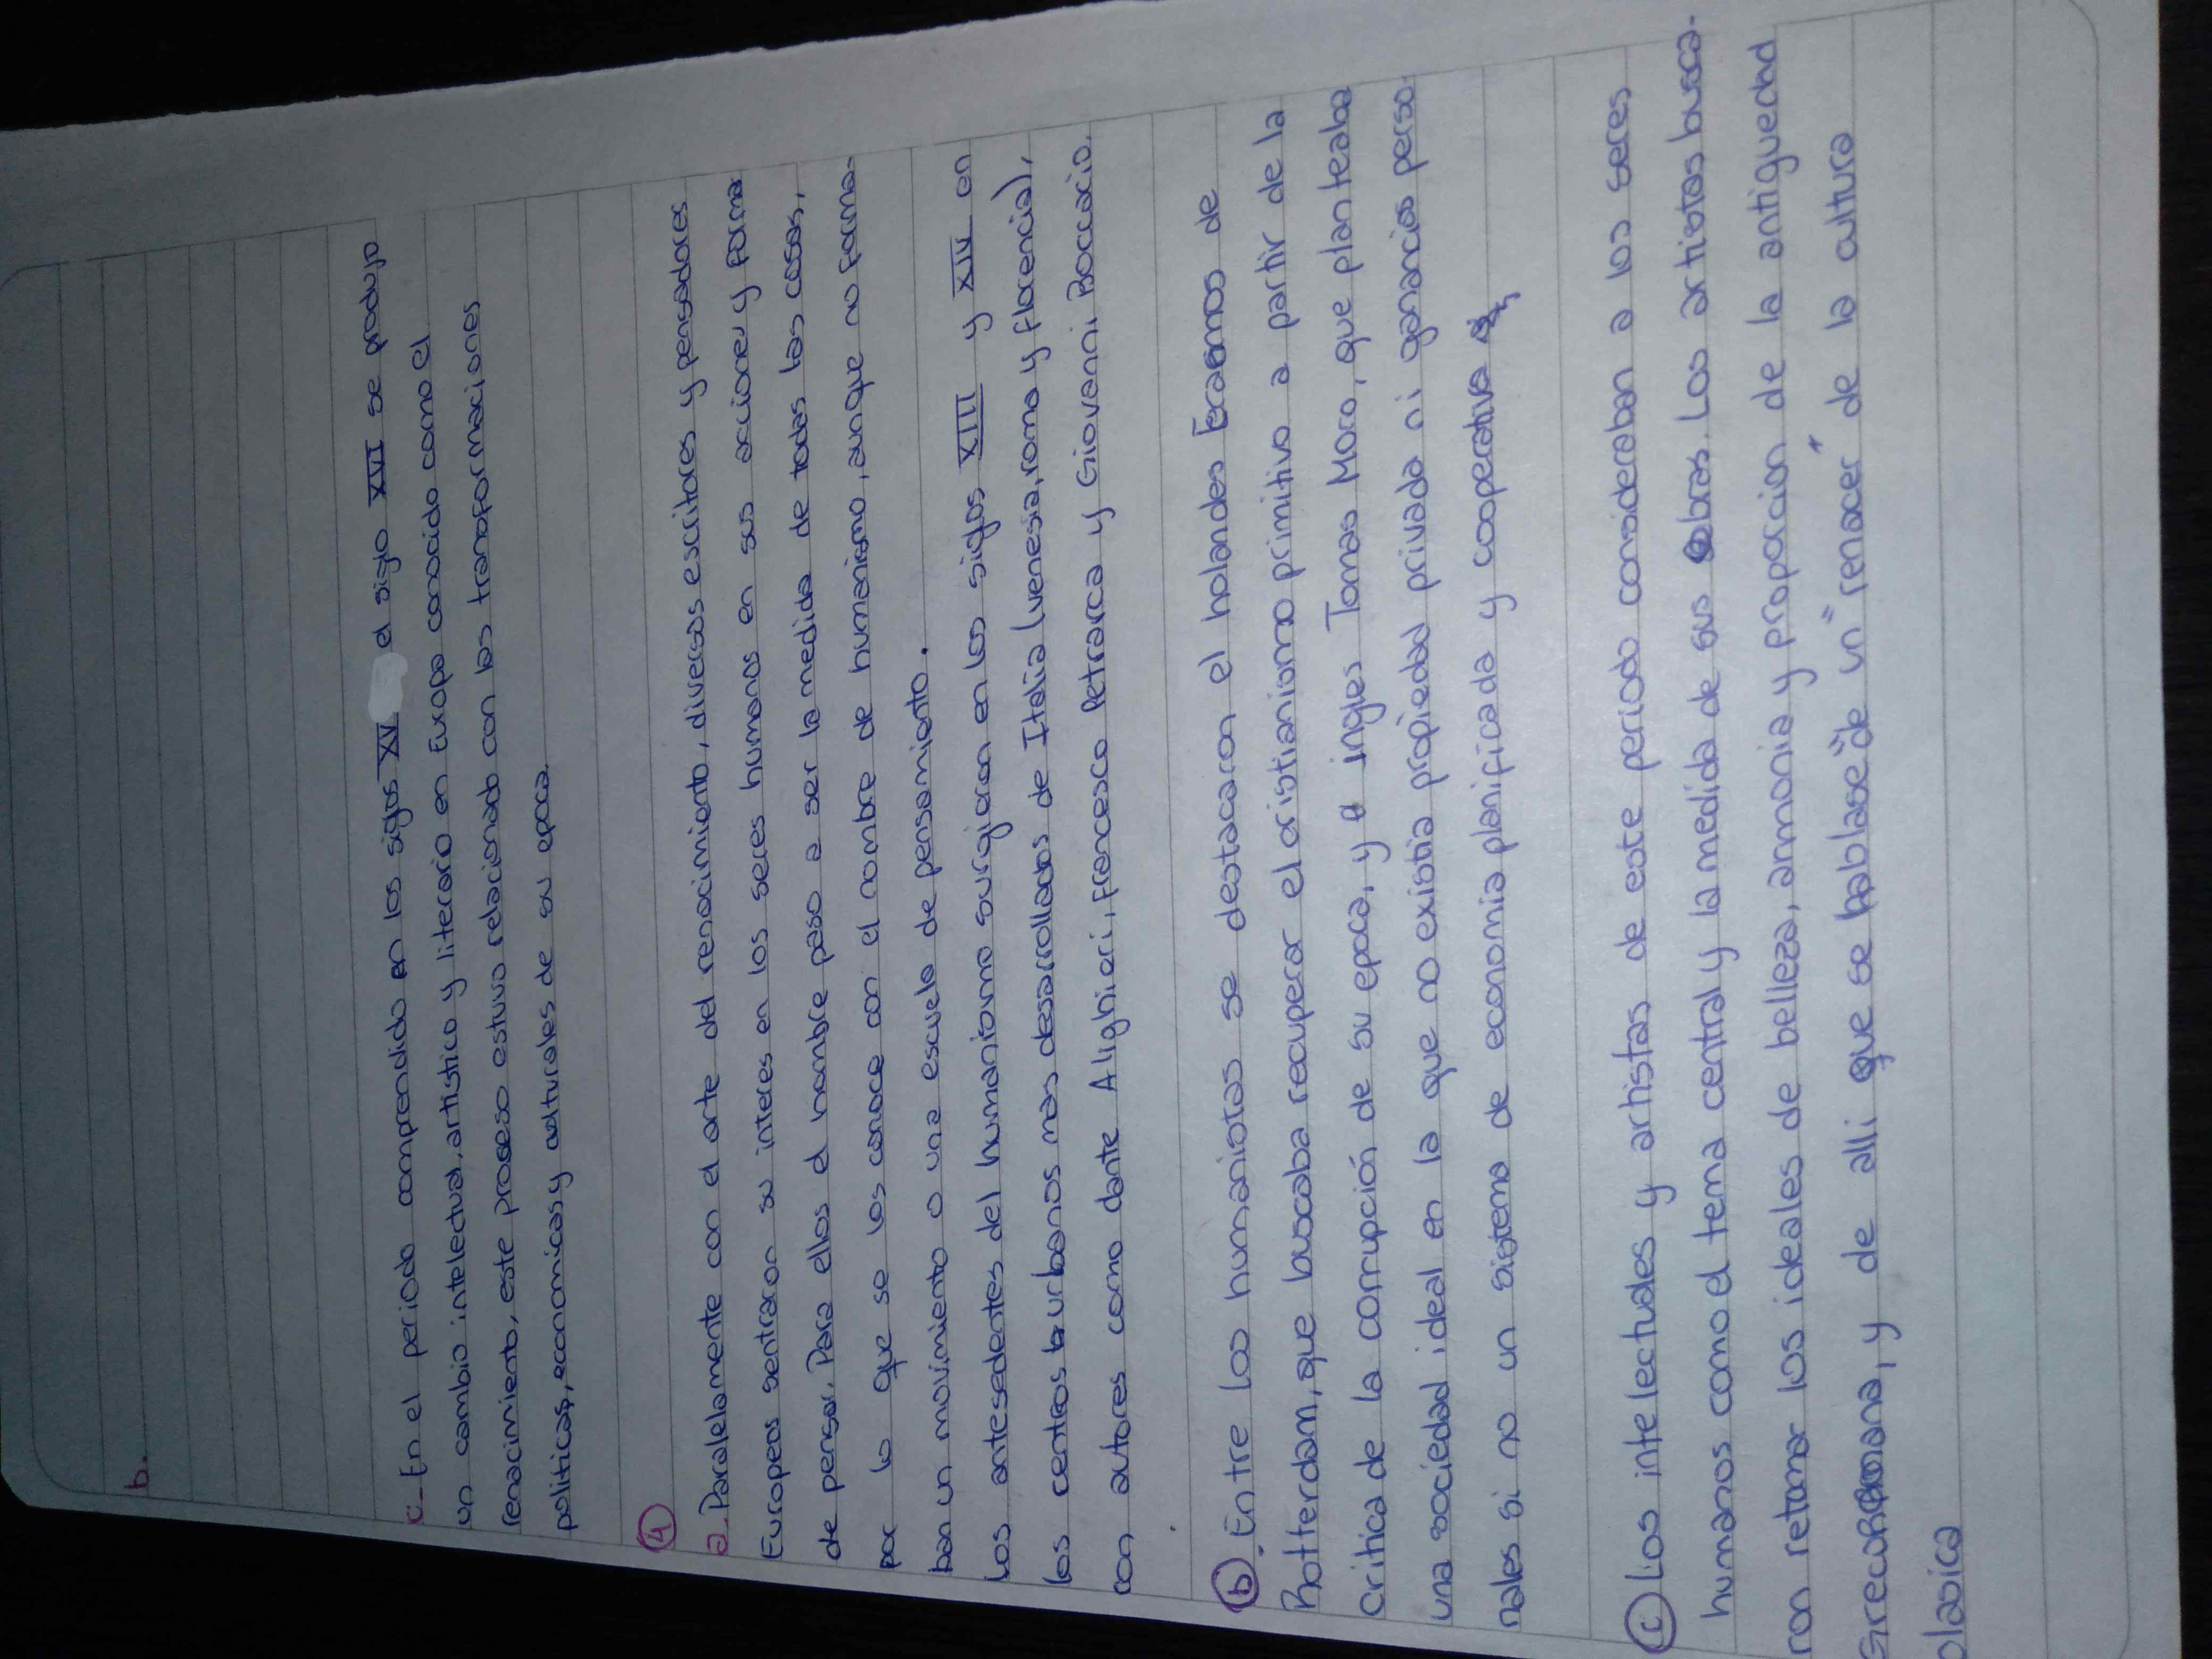 b.
c- En el periodo comprendido en los siglos XV el siglo XVI se produjo
un cambio intelectual, artistico y literario en Europa conocido como el
renacimiento, este proseso estuvo relacionado con las transformaciones
politicas, economicas y culturales de su epoca.
4
a. Paralelamente con el arte del renacimiento, diversos escritores y pensadores
Europeos sentraron su interes en los seres humanos en sus acciones y forma
de pensar. Para ellos el hombre paso a ser la medida de todas las cosas,
por lo que se los conoce con el nombre de humanismo, aunque no forma-
ban un movimiento o una escuela de pensamiento.
Los antesedentes del humanismo surgieron en los siglos XIII y XIV en
los centros urbanos mas desarrollados de Italia (venesia, roma y florencia),
con autores como dante Alighieri, francesco Petrarca y Giovanni Boccacio.
b. Entre los humanistas se destacaron el holandes Erasmos de
Rotterdam, que buscaba recuperar el cristianismo primitivo a partir de la
critica de la corrupción de su epoca, y el ingles Tomas Moro, que planteaba
una sociedad ideal en la que no existia propiedad privada ni ganancias perso-
nales si no un sistema de economia planificada y cooperativa
c Los intelectuales y artistas de este periodo consideraban a los seres
humanos como el tema central y la medida de sus obras. Los artistas busca-
ron retomar los ideales de belleza, armonia y proporcion de la antiguedad
Grecorromana, y de alli que se hablase "de un" "renacer" de la cultura
clasica